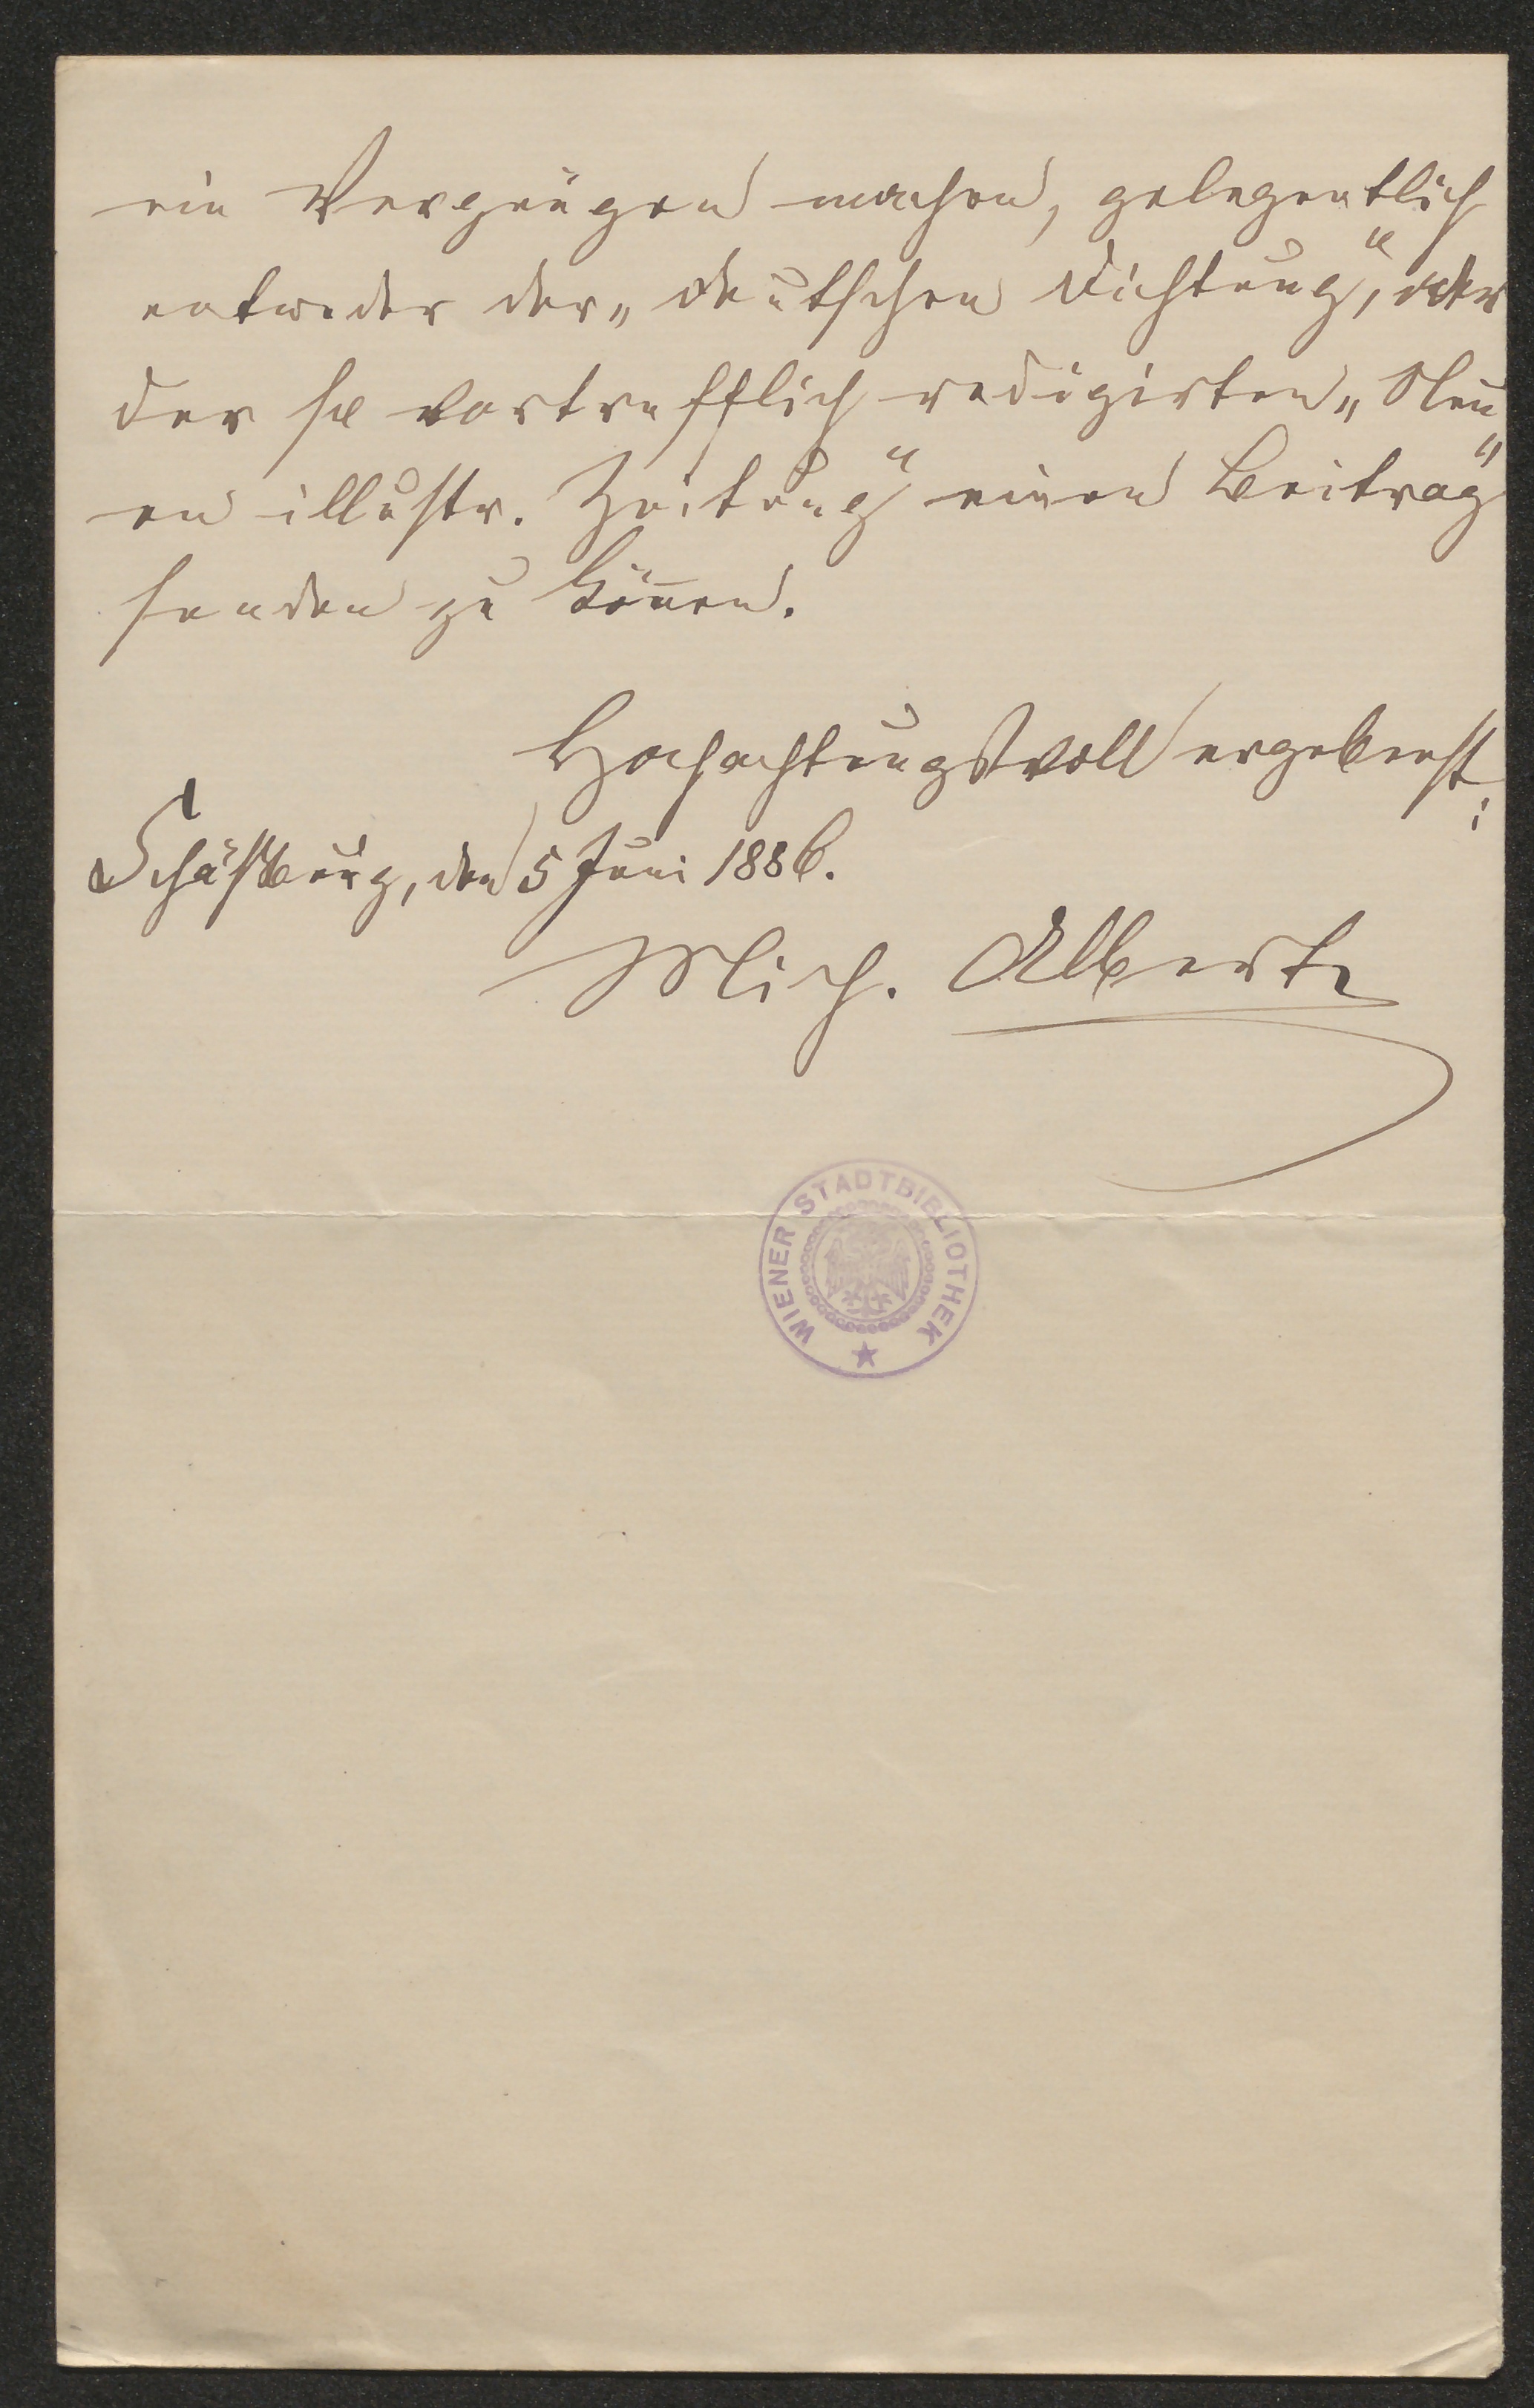 ein Vergnügen machen, gelegentlich
entweder der „deutschen Dichtung“, oder
der so vortrefflich redigirten „Neu„
en illustr. Zeitung“ einen Beitrag
senden zu können.
Hochachtungsvoll ergebenst:
Schäßburg, den 5 Juni 1886.
Mich. Albert
WIENER STADTBIBLIOTHEK